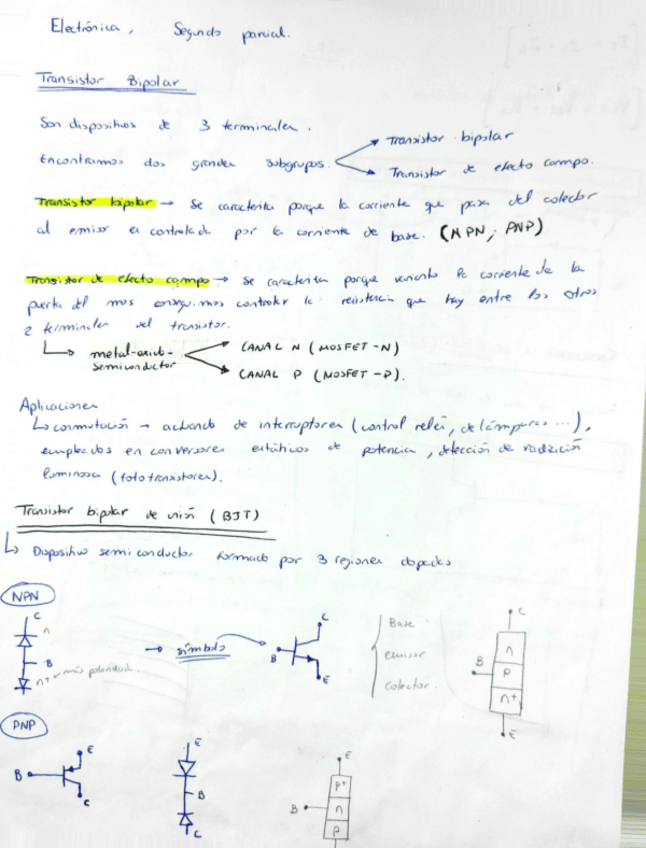 Electrónica, Segundo parcial.
Transistor Bipolar
Son dispositivos de 3 terminales.
Encontramos dos grandes subgrupos.
Transistor bipolar
Transistor de efecto campo.
Transistor bipolar → Se caracteriza porque la corriente que pasa del colector
al emisor es controlada por la corriente de base. (NPN, PNP)
Transistor de efecto campo → se caracteriza porque variando la corriente de la
puerta del mos conseguimos controlar la resistencia que hay entre los otros
2 terminales del transistor.
metal-oxido-
semiconductor
CANAL N (MOSFET-N)
CANAL P (MOSFET-P).
Aplicaciones
conmutación → actuando de interruptores (control relés, de lámparas ...),
empleados en conversores estáticos de potencia, detección de radiación
luminosa (foto transistores).
Transistor bipolar de unión (BJT)
Dispositivo semiconductor formado por 3 regiones dopadas
NPN
C
n
B
n+ → más
→ símbolo
C
B
E
Base
emisor
colector.
C
n
B
P
n+
E
PNP
E
B
C
E
B
C
E
P+
B
n
P